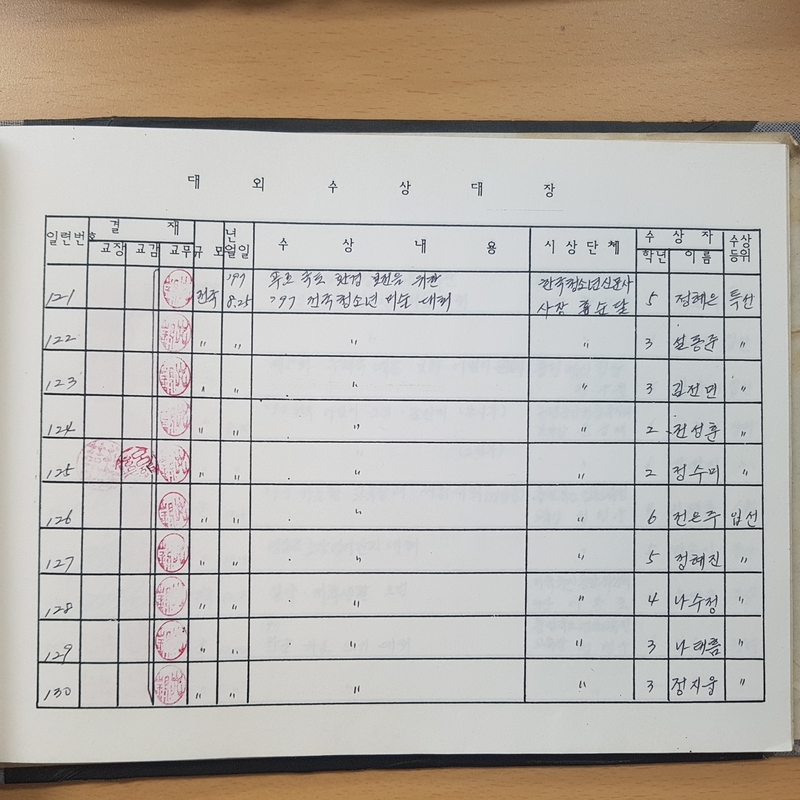 대 외 수 상 대 장
일련번호 결 재 규 모 년월일 수 상 내 용 시상단체 수 상 자 수상등위
교장 교감 교무 학년 이름
121 전국 '97 8.25 푸른 국토 환경 보전을 위한 한국청소년신문사 5 정혜은 특선
'97 전국청소년 미술 대회 사장 순달
122 〃 〃 〃 〃 3 설동준 〃
123 〃 〃 〃 〃 3 김전민 〃
124 〃 〃 〃 〃 2 전성훈 〃
125 〃 〃 〃 〃 2 정수미 〃
126 〃 〃 〃 〃 6 전은주 입선
127 〃 〃 〃 〃 5 정혜진 〃
128 〃 〃 〃 〃 4 나수정 〃
129 〃 〃 〃 〃 3 나태름 〃
130 〃 〃 〃 〃 3 정지웅 〃